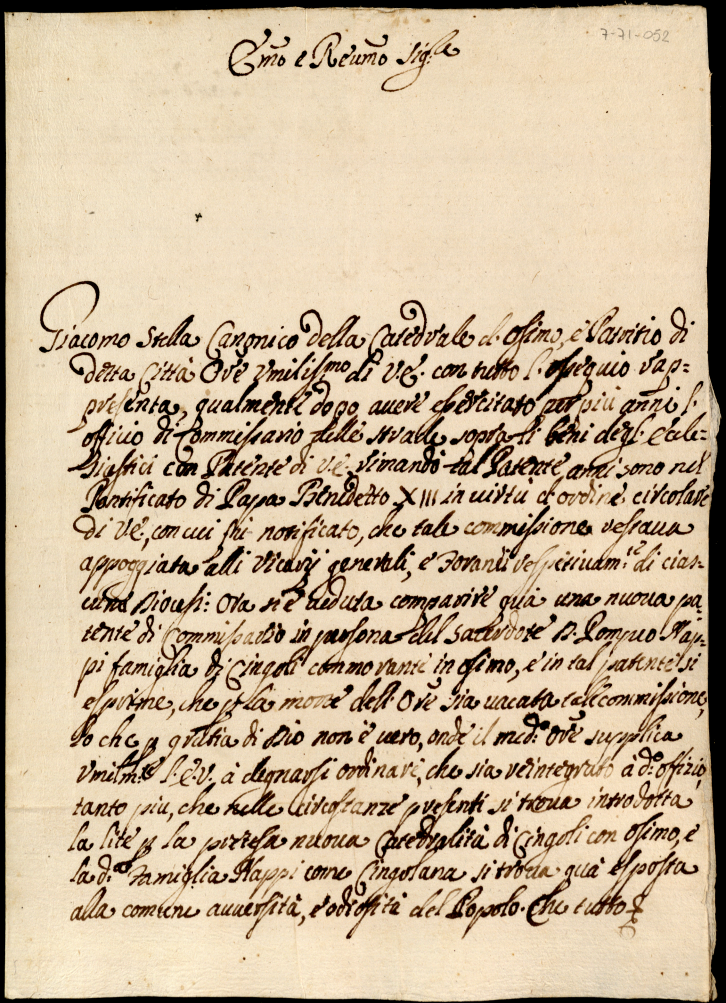 7-71-052
Emo e Reumo Sig.re
Giacomo Stella Canonico della Catedrale d'Osimo, e Patritio di
detta Città Ore Umiliss.mo di V.E. con tutto l'ossequio rap=
presenta, qualmente dopo auere esercitato per più anni l'
officio di Commissario delle stralle sopra li beni degl'Eccle=
siastici con Patente di V.E. rimandò tal Patente anni sono nel
Pontificato di Papa Benedetto XIII in uirtù d'ordine circolare
di V.E., con cui fu notificato, che tale commissione restaua
appoggiata alli Vicarij generali, e Foranei respetiuam.te di cias=
cuna Diocesi: Ora si è ueduta comparire quà una nuoua pa=
tente di Commissario in persona del Sacerdote D. Pompeo Nap=
pi famiglia di Cingoli commorante in Osimo, e in tal patente si
esprime, che p la morte dell'Ore sia uacata tal commissione,
lo che p gratia di Dio non è uero, onde il med.o Ore supplica
umilm.te l'E.V. à degnarsi ordinare, che sia reintegrato à d.o offizio,
tanto piu, che nelle circostanze presenti si troua introdotta
la lite p la pretesa nuoua Catedralità di Cingoli con Osimo, e
la d.a Famiglia Nappi come Cingolana si troua quà esposta
alla comune auuersità, e odiosità del Popolo. Che tutto